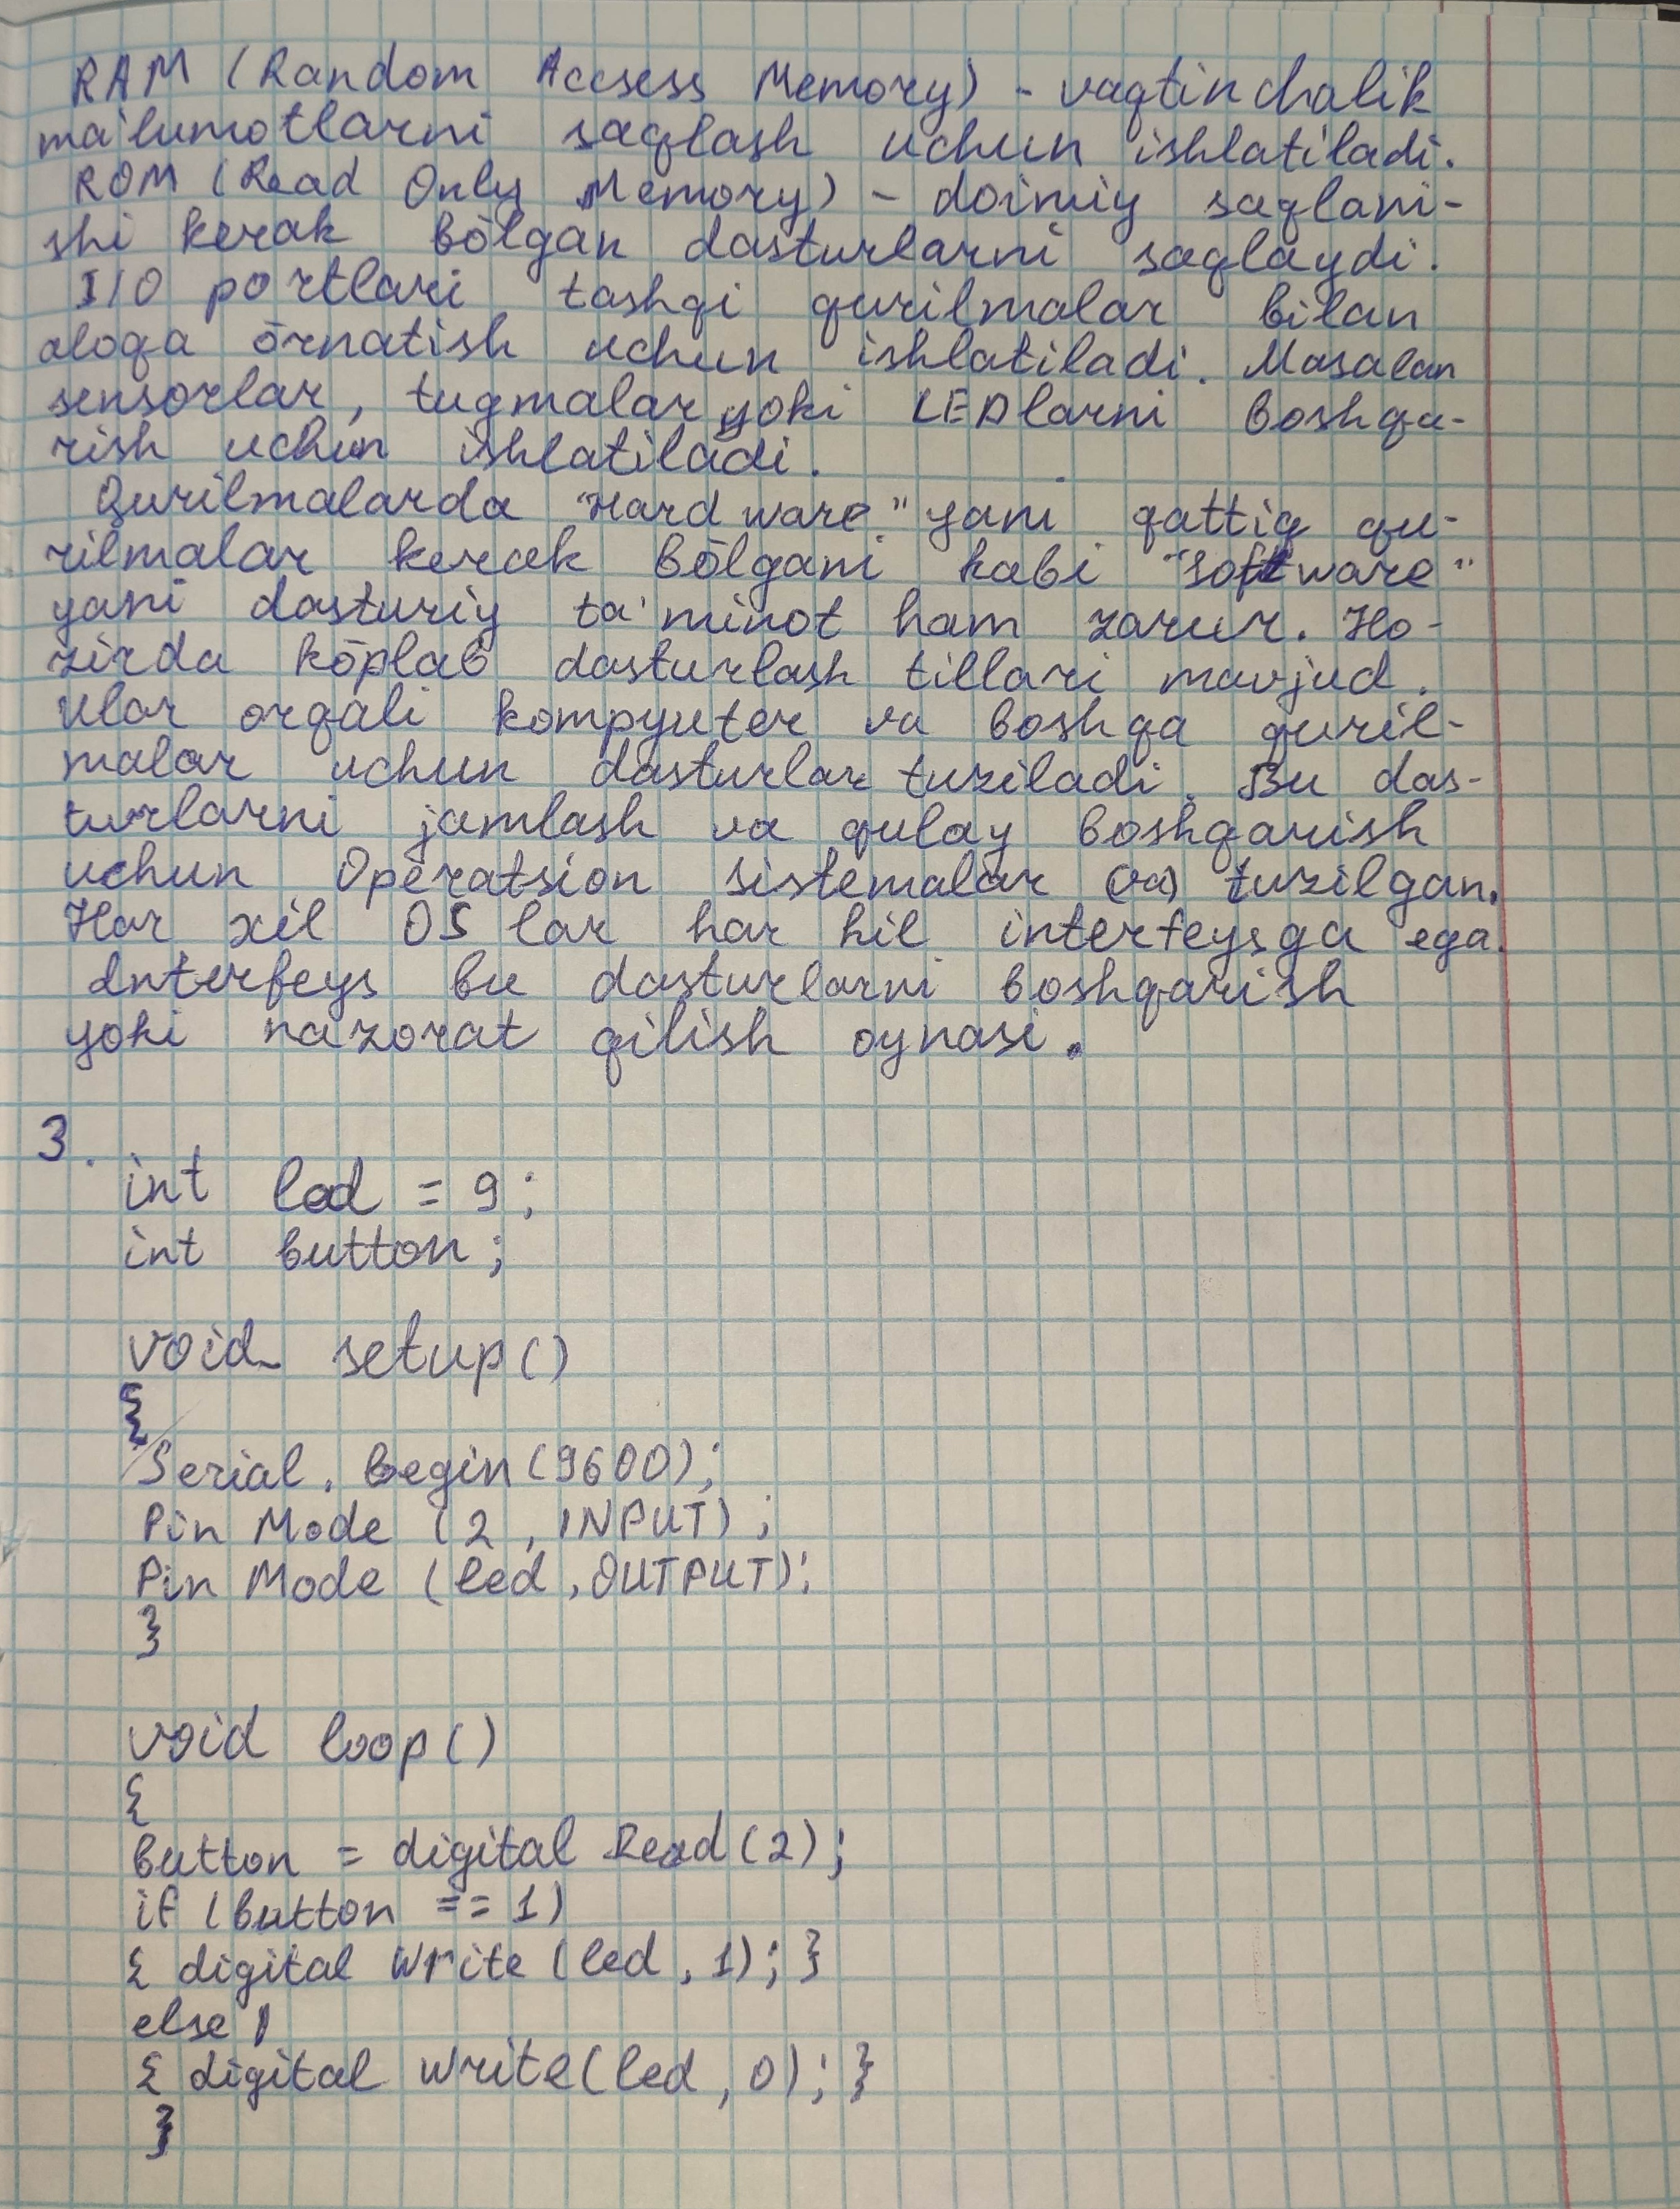 RAM (Random Accsess Memory) - vaqtinchalik
ma'lumotlarni saqlash uchun ishlatiladi.
ROM (Read Only Memory) - doimiy saqlani-
shi kerak bōlgan dasturlarni saqlaydi.
I/O portlari tashqi qurilmalar bilan
aloqa ōrnatish uchun ishlatiladi. Masalan
sensorlar, tugmalar yoki LEDlarni boshqa-
rish uchun ishlatiladi.
Qurilmalarda "Hard ware" yani qattiq qu-
rilmalar kerak bōlgani kabi "software"
yani dasturiy ta'minot ham zarur. Ho-
zirda kōplab dasturlash tillari mavjud.
Ular orqali kompyuter va boshqa quril-
malar uchun dasturlar tuziladi. Bu das-
turlarni jamlash va qulay boshqarish
uchun Operatsion sistemalar tuzilgan.
Har xil OS lar har hil interfeysga ega.
Interfeys bu dasturlarni boshqarish
yoki nazorat qilish oynasi.
3.
int led = 9;
int button;
void setup()
{
Serial. begin(9600);
Pin Mode (2, INPUT);
Pin Mode (led, OUTPUT);
}
void loop()
{
button = digital Read(2);
if (button == 1)
{ digital Write (led, 1); }
else
{ digital Write(led, 0); }
}